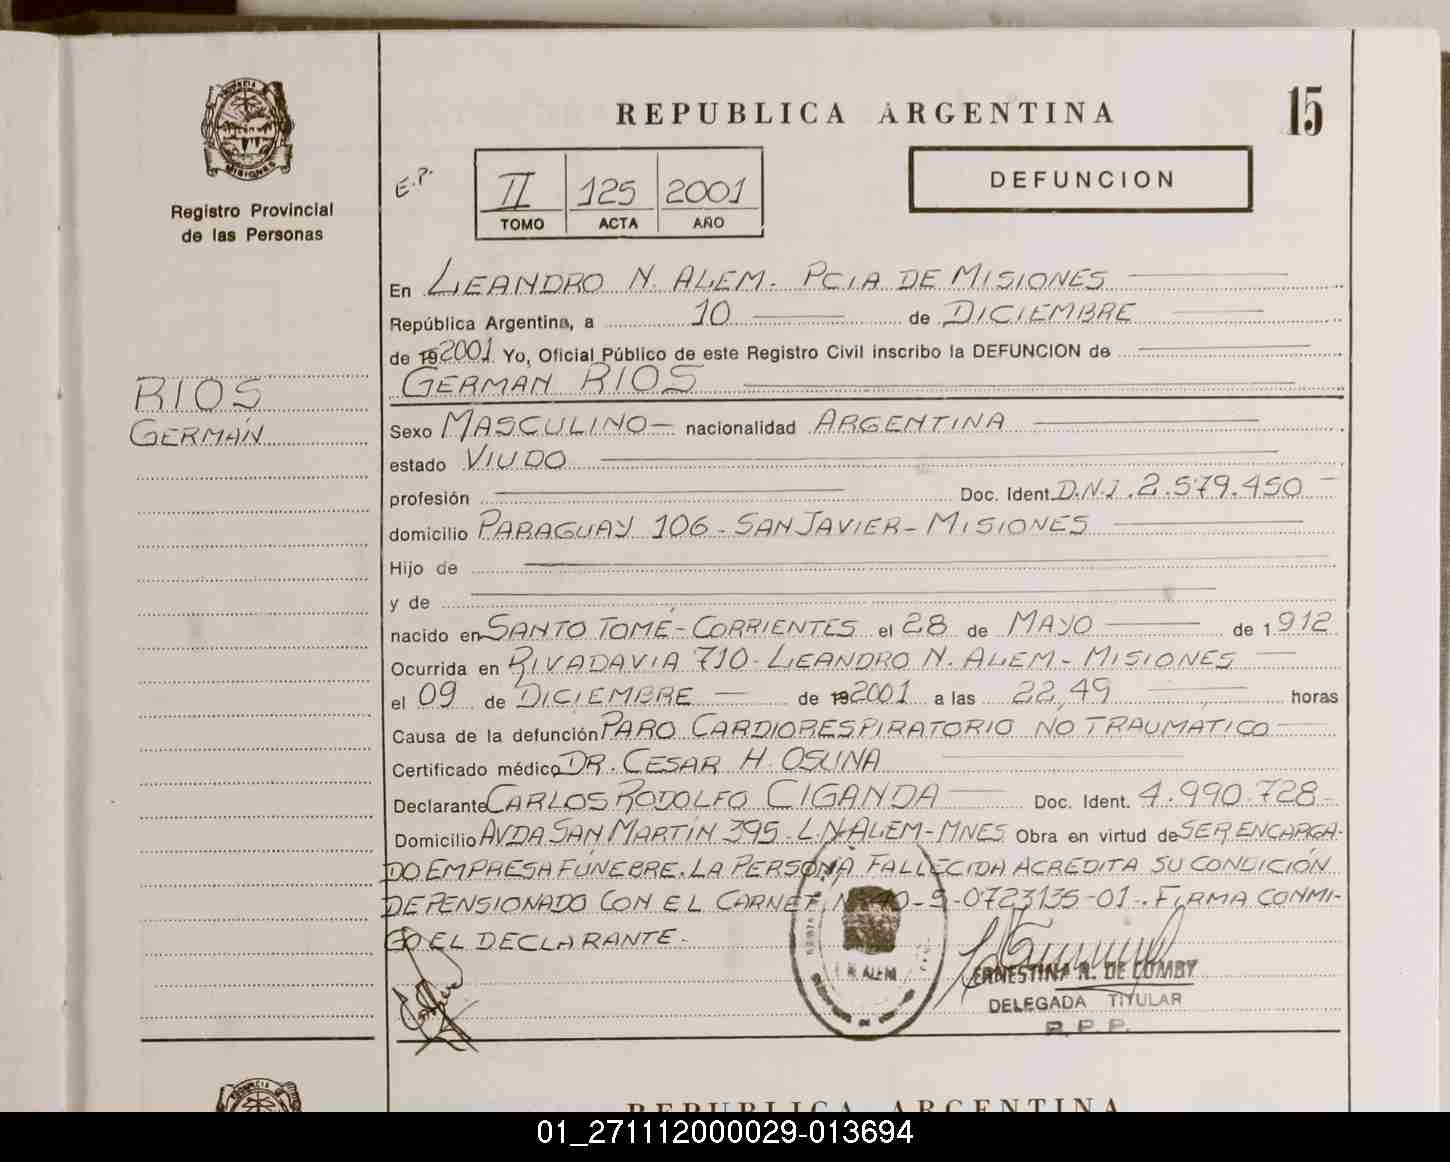 PROVINCIA DE
MISIONES
Registro Provincial
de las Personas
RIOS
GERMÁN
REPUBLICA ARGENTINA
15
E.P.
II 125 2001
TOMO ACTA AÑO
DEFUNCION
En LEANDRO N. ALEM. PCIA DE MISIONES
República Argentina, a 10 de DICIEMBRE
de 192001 Yo, Oficial Público de este Registro Civil inscribo la DEFUNCION de
GERMAN RIOS
Sexo MASCULINO- nacionalidad ARGENTINA
estado VIUDO
profesión Doc. Ident. D.N.I. 2.579.450
domicilio PARAGUAY 106-SAN JAVIER-MISIONES
Hijo de
y de
nacido en SANTO TOMÉ-CORRIENTES el 28 de MAYO de 1912
Ocurrida en RIVADAVIA 710-LEANDRO N. ALEM-MISIONES
el 09 de DICIEMBRE de 192001 a las 22,49 horas
Causa de la defunción PARO CARDIORESPIRATORIO NO TRAUMATICO
Certificado médico DR. CESAR H. OSUNA
Declarante CARLOS RODOLFO CIGANDA Doc. Ident. 4.990.728-
Domicilio AVDA SAN MARTÍN 395-L.N.ALEM-MNES Obra en virtud de SER ENCARGA-
DO EMPRESA FÚNEBRE. LA PERSONA FALLECIDA ACREDITA SU CONDICIÓN
DE PENSIONADO CON EL CARNET Nº 40-5-0723135-01-. FIRMA CONMI-
GO EL DECLARANTE.-
L. N. ALEM
ERNESTINA R. DE LOMBY
DELEGADA TITULAR
R. P. P.
REPUBLICA ARGENTINA
01_271112000029-013694